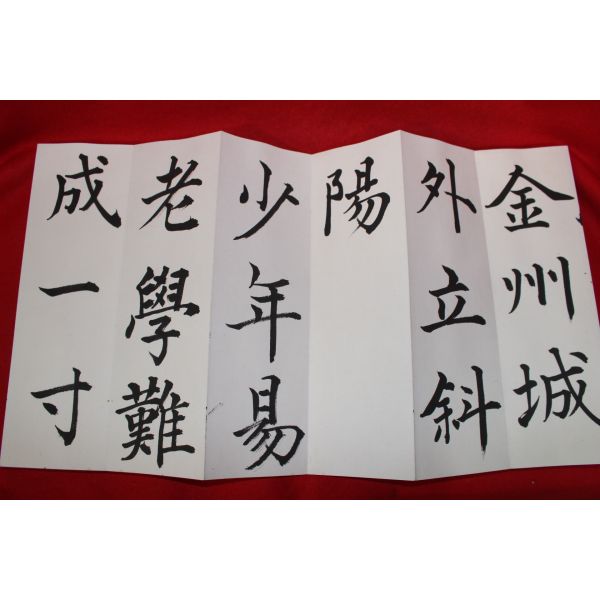 金州城
外立斜
陽
少年易
老學難
成一寸